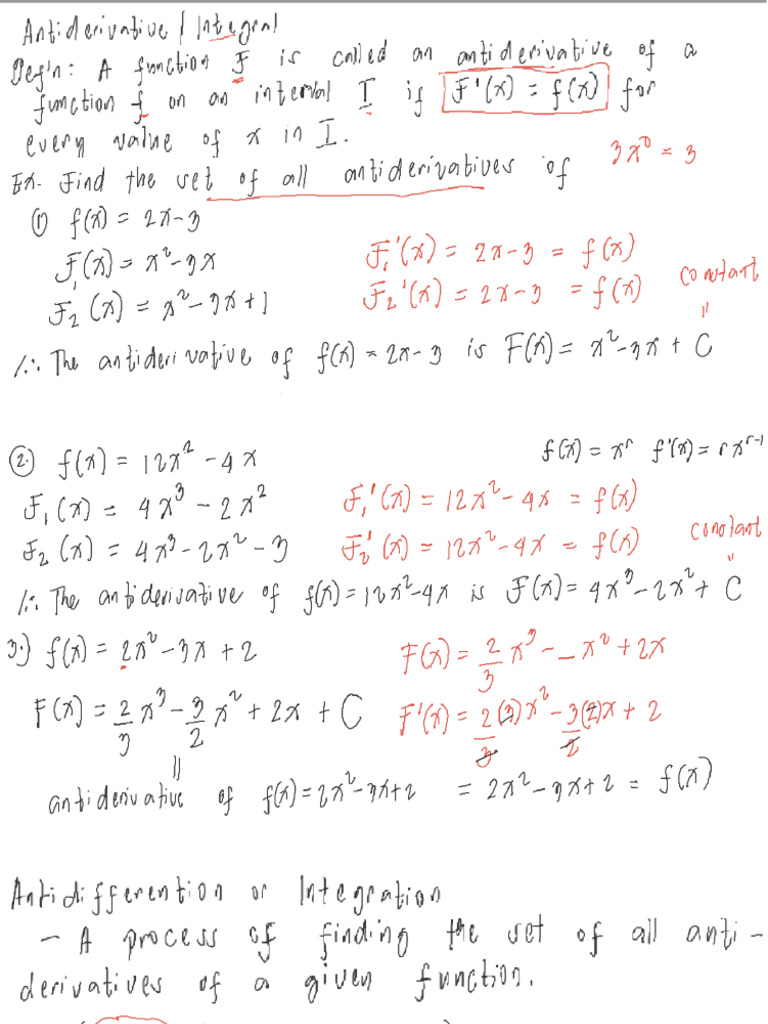 Antiderivative / Integral
Defg'n: A function F is called an antiderivative of a
function f on an interval I if F'(x) = f(x) for
every value of x in I.
Ex. Find the set of all antiderivatives of 3x⁰ = 3
① f(x) = 2x-3
F₁(x) = x²-3x F₁'(x) = 2x-3 = f(x)
F₂(x) = x²-3x+1 F₂'(x) = 2x-3 = f(x) constant
∴ The antiderivative of f(x) = 2x-3 is F(x) = x²-3x + C
② f(x) = 12x² - 4x f(x) = xʳ f'(x) = r xʳ⁻¹
F₁(x) = 4x³ - 2x² F₁'(x) = 12x² - 4x = f(x)
F₂(x) = 4x³-2x² - 3 F₂'(x) = 12x²-4x = f(x) constant
∴ The antiderivative of f(x) = 12x²-4x is F(x) = 4x³-2x² + C
3.) f(x) = 2x² - 3x + 2 F(x) = 2/3 x³ - _ x² + 2x
F(x) = 2/3 x³ - 3/2 x² + 2x + C F'(x) = 2(3)/3 x² - 3(2)/2 x + 2
antiderivative of f(x) = 2x²-3x+2 = 2x²-3x+2 = f(x)
Antidifferention or Integration
- A process of finding the set of all anti-
derivatives of a given function.